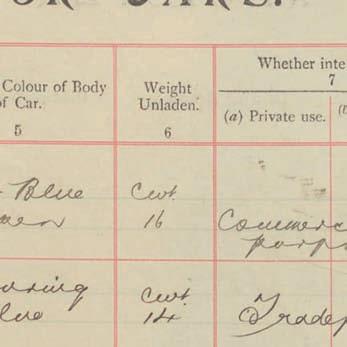 OR CARS.
Colour of Body
of Car.
5
Weight
Unladen.
6
Whether inte
7
(a) Private use.
(b
Blue
Cwt.
16
Commerc
purp
Touring
Blue
Cwt.
14
Trade p